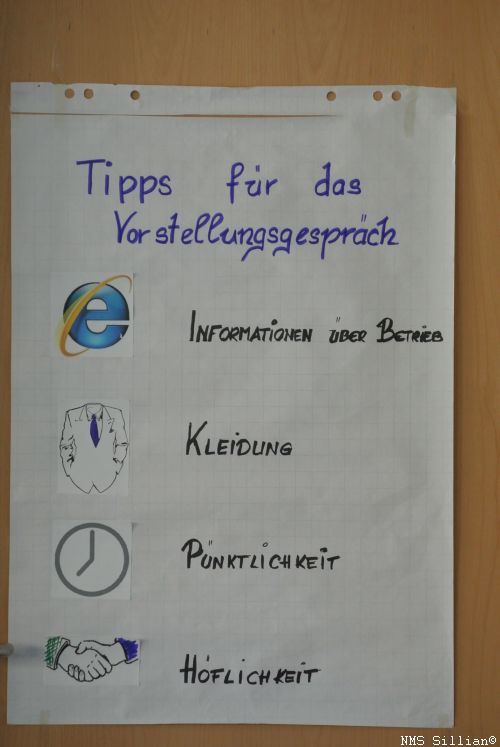 Tipps für das
Vorstellungsgespräch
INFORMATIONEN ÜBER BETRIEB
KLEIDUNG
PÜNKTLICHKEIT
HÖFLICHKEIT
NMS Sillian©